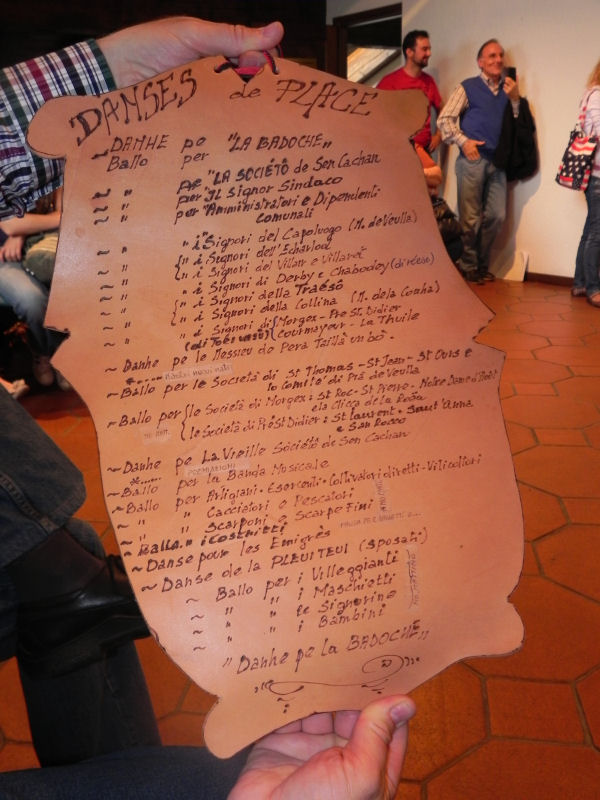 DANSES de PLACE
~ DANHE pe "LA BADOCHE"
Ballo per
~ " pe "LA SOCIÉTÔ de Sen Cachan
~ " per "Il Signor Sindaco
~ " per "Amministratori e Dipendenti
comunali
~ " " i Signori del Capoluogo (M. de Veulla)
~ " " i Signori dell'Echarlod
~ " " i Signori del Villair e Villarot
~ " " i Signori di Derby e Chabodey
~ " " i Signori della Traesô
~ " " i Signori della Collina (M. de la Couha)
~ " " i Signori di Morgex - Pré St. Didier
Courmayeur - La Thuile
~ Danhe pe le Messieu de Pera Taillà un bô.
~ Ballo per le Società di St Thomas - St Jean - St Ours e
lo Comite di Prà de Veulla
~ Ballo per le Società di Morgex: St Roc - St Pierre - Notre Dame
e la Clicca de la
le Società di Pré St Didier: St Laurent - Saut Anna
e San Rocco
~ Danhe pe La Vieille Sociétô de Sen Cachan
PREMIAZIONI
~ Ballo per la Banda Musicale
~ Ballo per Artigiani - Esercenti - Coltivatori diretti - Viticoltori
~ " " Cacciatori e Pescatori
~ " " Scarponi e Scarpe Fini
~ Ballo " i Coscritti
~ Danse pour les Emigrés
~ Danse de la PLEUITEUI (Sposati)
~ Ballo per i Villeggianti
~ " " i Maschietti
~ " " le Signorine
~ " " i Bambini
~ " Danhe pe la BADOCHE"